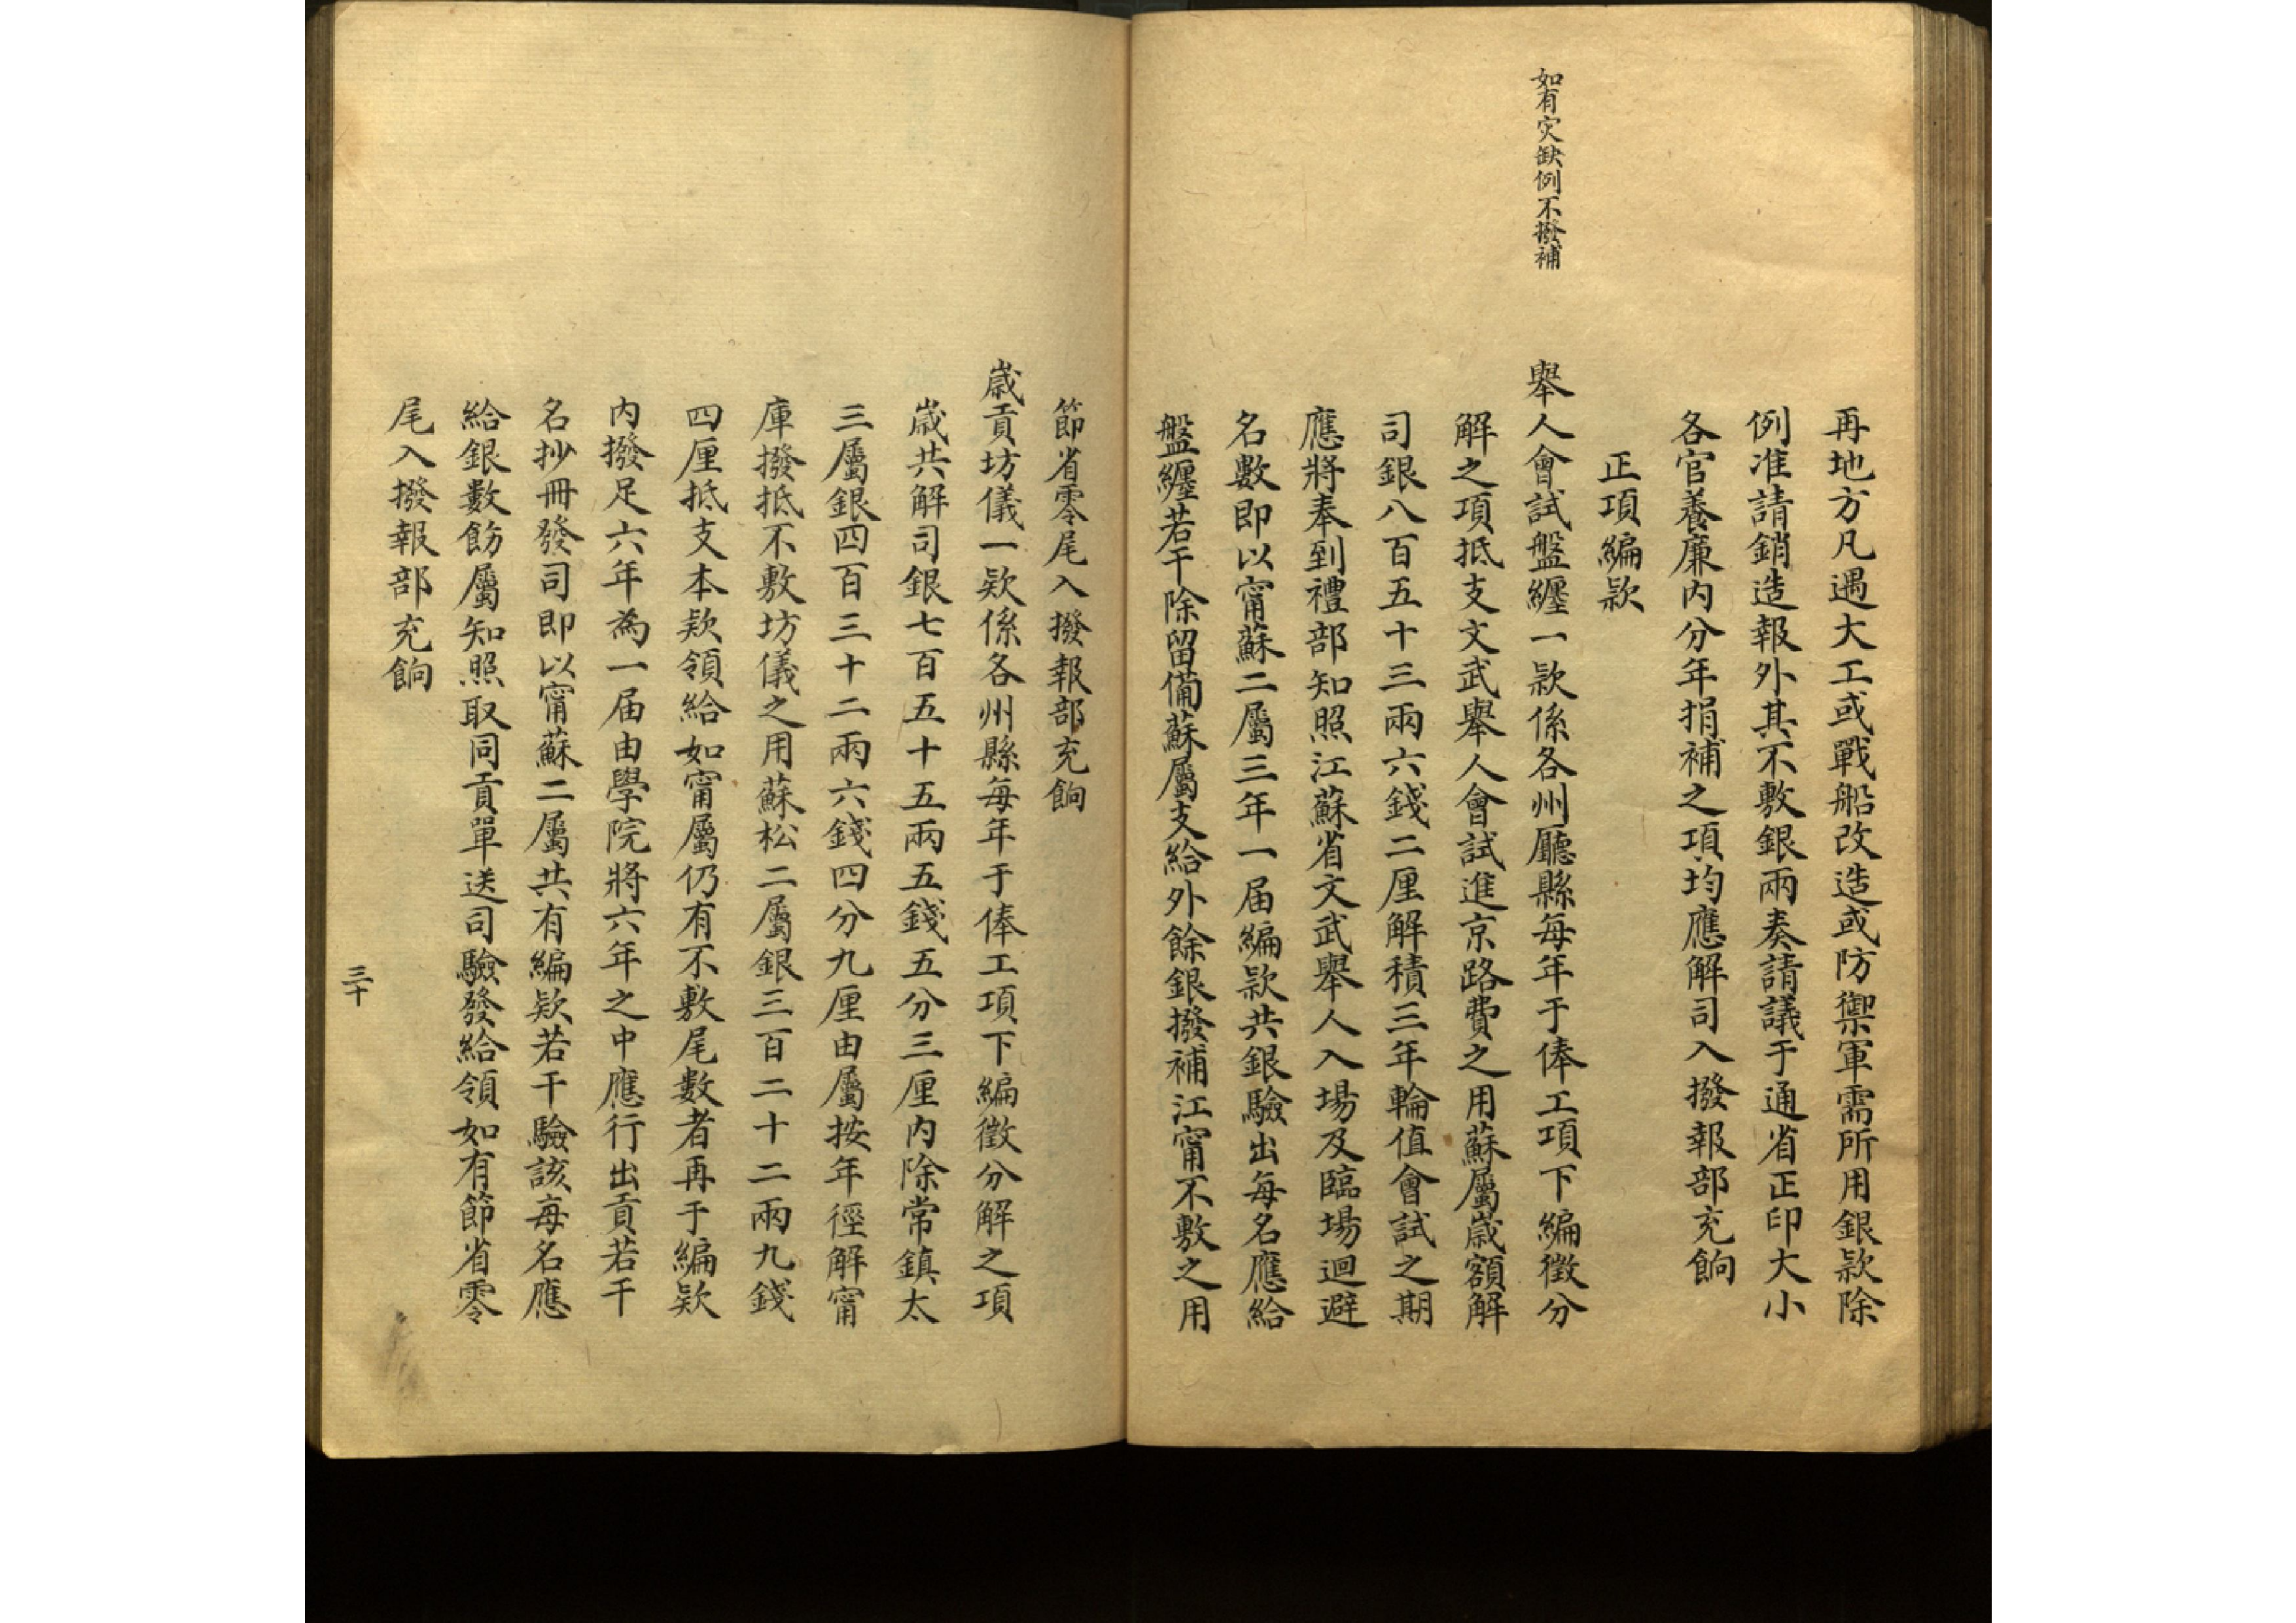 再地方凡遇大工或戰船改造或防禦軍需所用銀款除
例准請銷造報外其不敷銀兩奏請議于通省正印大小
各官養廉内分年捐補之項均應解司入撥報部充餉
正項編款
如有灾缺例不撥補
舉人會試盤纏一款係各州廳縣每年于俸工項下編徵分
解之項抵支文武舉人會試進京路費之用蘇屬歲額解
司銀八百五十三兩六錢二厘解積三年輪值會試之期
應將奉到禮部知照江蘇省文武舉人入場及臨場迴避
名數即以甯蘇二屬三年一届編款共銀驗出每名應給
盤纏若干除留備蘇屬支給外餘銀撥補江甯不敷之用
節省零尾入撥報部充餉
歲貢坊儀一款係各州縣每年于俸工項下編徵分解之項
歲共解司銀七百五十五兩五錢五分三厘内除常鎮太
三屬銀四百三十二兩六錢四分九厘由屬按年徑解甯
庫撥抵不敷坊儀之用蘇松二屬銀三百二十二兩九錢
四厘抵支本款領給如甯屬仍有不敷尾數者再于編款
内撥足六年為一届由學院將六年之中應行出貢若干
名抄冊發司即以甯蘇二屬共有編款若干驗該每名應
給銀數飭屬知照取同貢單送司驗發給領如有節省零
尾入撥報部充餉
三十